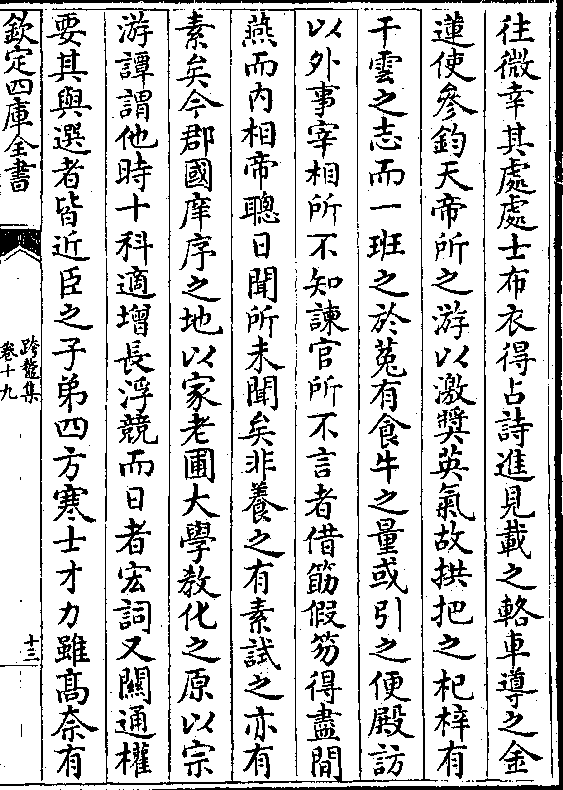 往微幸其處處士布衣得占詩進見載之輅車導之金
蓮使參鈞天帝所之游以激奬英氣故拱把之杞梓有
干雲之志而一班之於菟有食牛之量或引之便殿訪
以外事宰相所不知諫官所不言者借筯假笏得盡間
燕而内相帝聰日聞所未聞矣非養之有素試之亦有
素矣今郡國庠序之地以家老圃大學教化之原以宗
游譚謂他時十科適增長浮競而日者宏詞又關通權
要其與選者皆近臣之子弟四方寒士才力雖高奈有
欽定四庫全書
跨鼇集
卷十九
十三